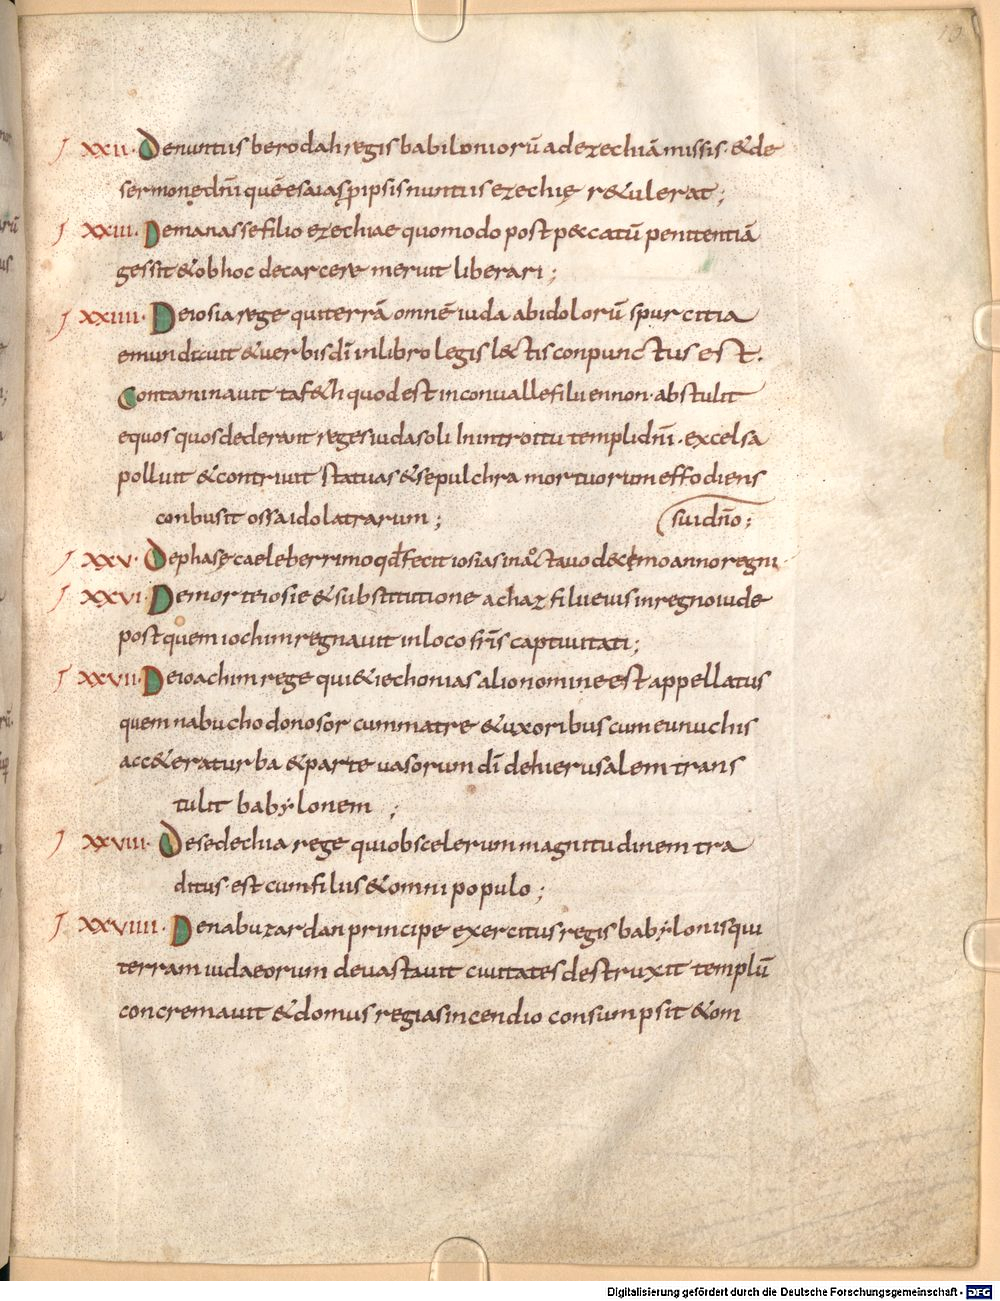 10
XXII. De nuntiis berodah regis babiloniorū ad ezechiā missis & de
sermone dn̄i quē esaias p ipsis nuntiis ezechię r&ulerat;
XXIII. De manasse filio ezechiae quomodo post p&ccatū penitentiā
gessit & ob hoc de carcere meruit liberari;
XXIIII. De iosia rege qui terrā omnē iuda ab idolorū spurcitia
emundauit & uerbis dī in libro legis l&ctis conpunctus est.
Contaminauit taf&h quod est in conualle filii ennon. abstulit
equos quos dederant reges iuda soli In introitu templi dn̄i. excelsa
polluit & contriuit statuas & sepulchra mortuorum effodiens
conbusit ossa idolatrarum; sui dn̄o;
XXV. De phase caeleberrimo qd fecit iosias in octauo decimo anno regni
XXVI. De morte iosie & substitutione achaz filii eius in regno iude
post quem iochim regnauit in loco fr̄is captiuitati;
XXVII. De ioachim rege qui & iechonias alio nomine est appellatus
quem nabuchodonosor cum matre & uxoribus cum eunuchis
acc& era turba & parte uasorum dī de hierusalem trans
tulit babylonem ;
XXVIII. De sedechia rege qui ob scelerum magnitudinem tra
ditus est cum filiis & omni populo;
XXVIIII. De nabuzardan principe exercitus regis babylonis qui
terram iudaeorum deuastauit ciuitates destruxit templū
concremauit & domus regias incendio consumpsit & om
Digitalisierung gefördert durch die Deutsche Forschungsgemeinschaft - DFG